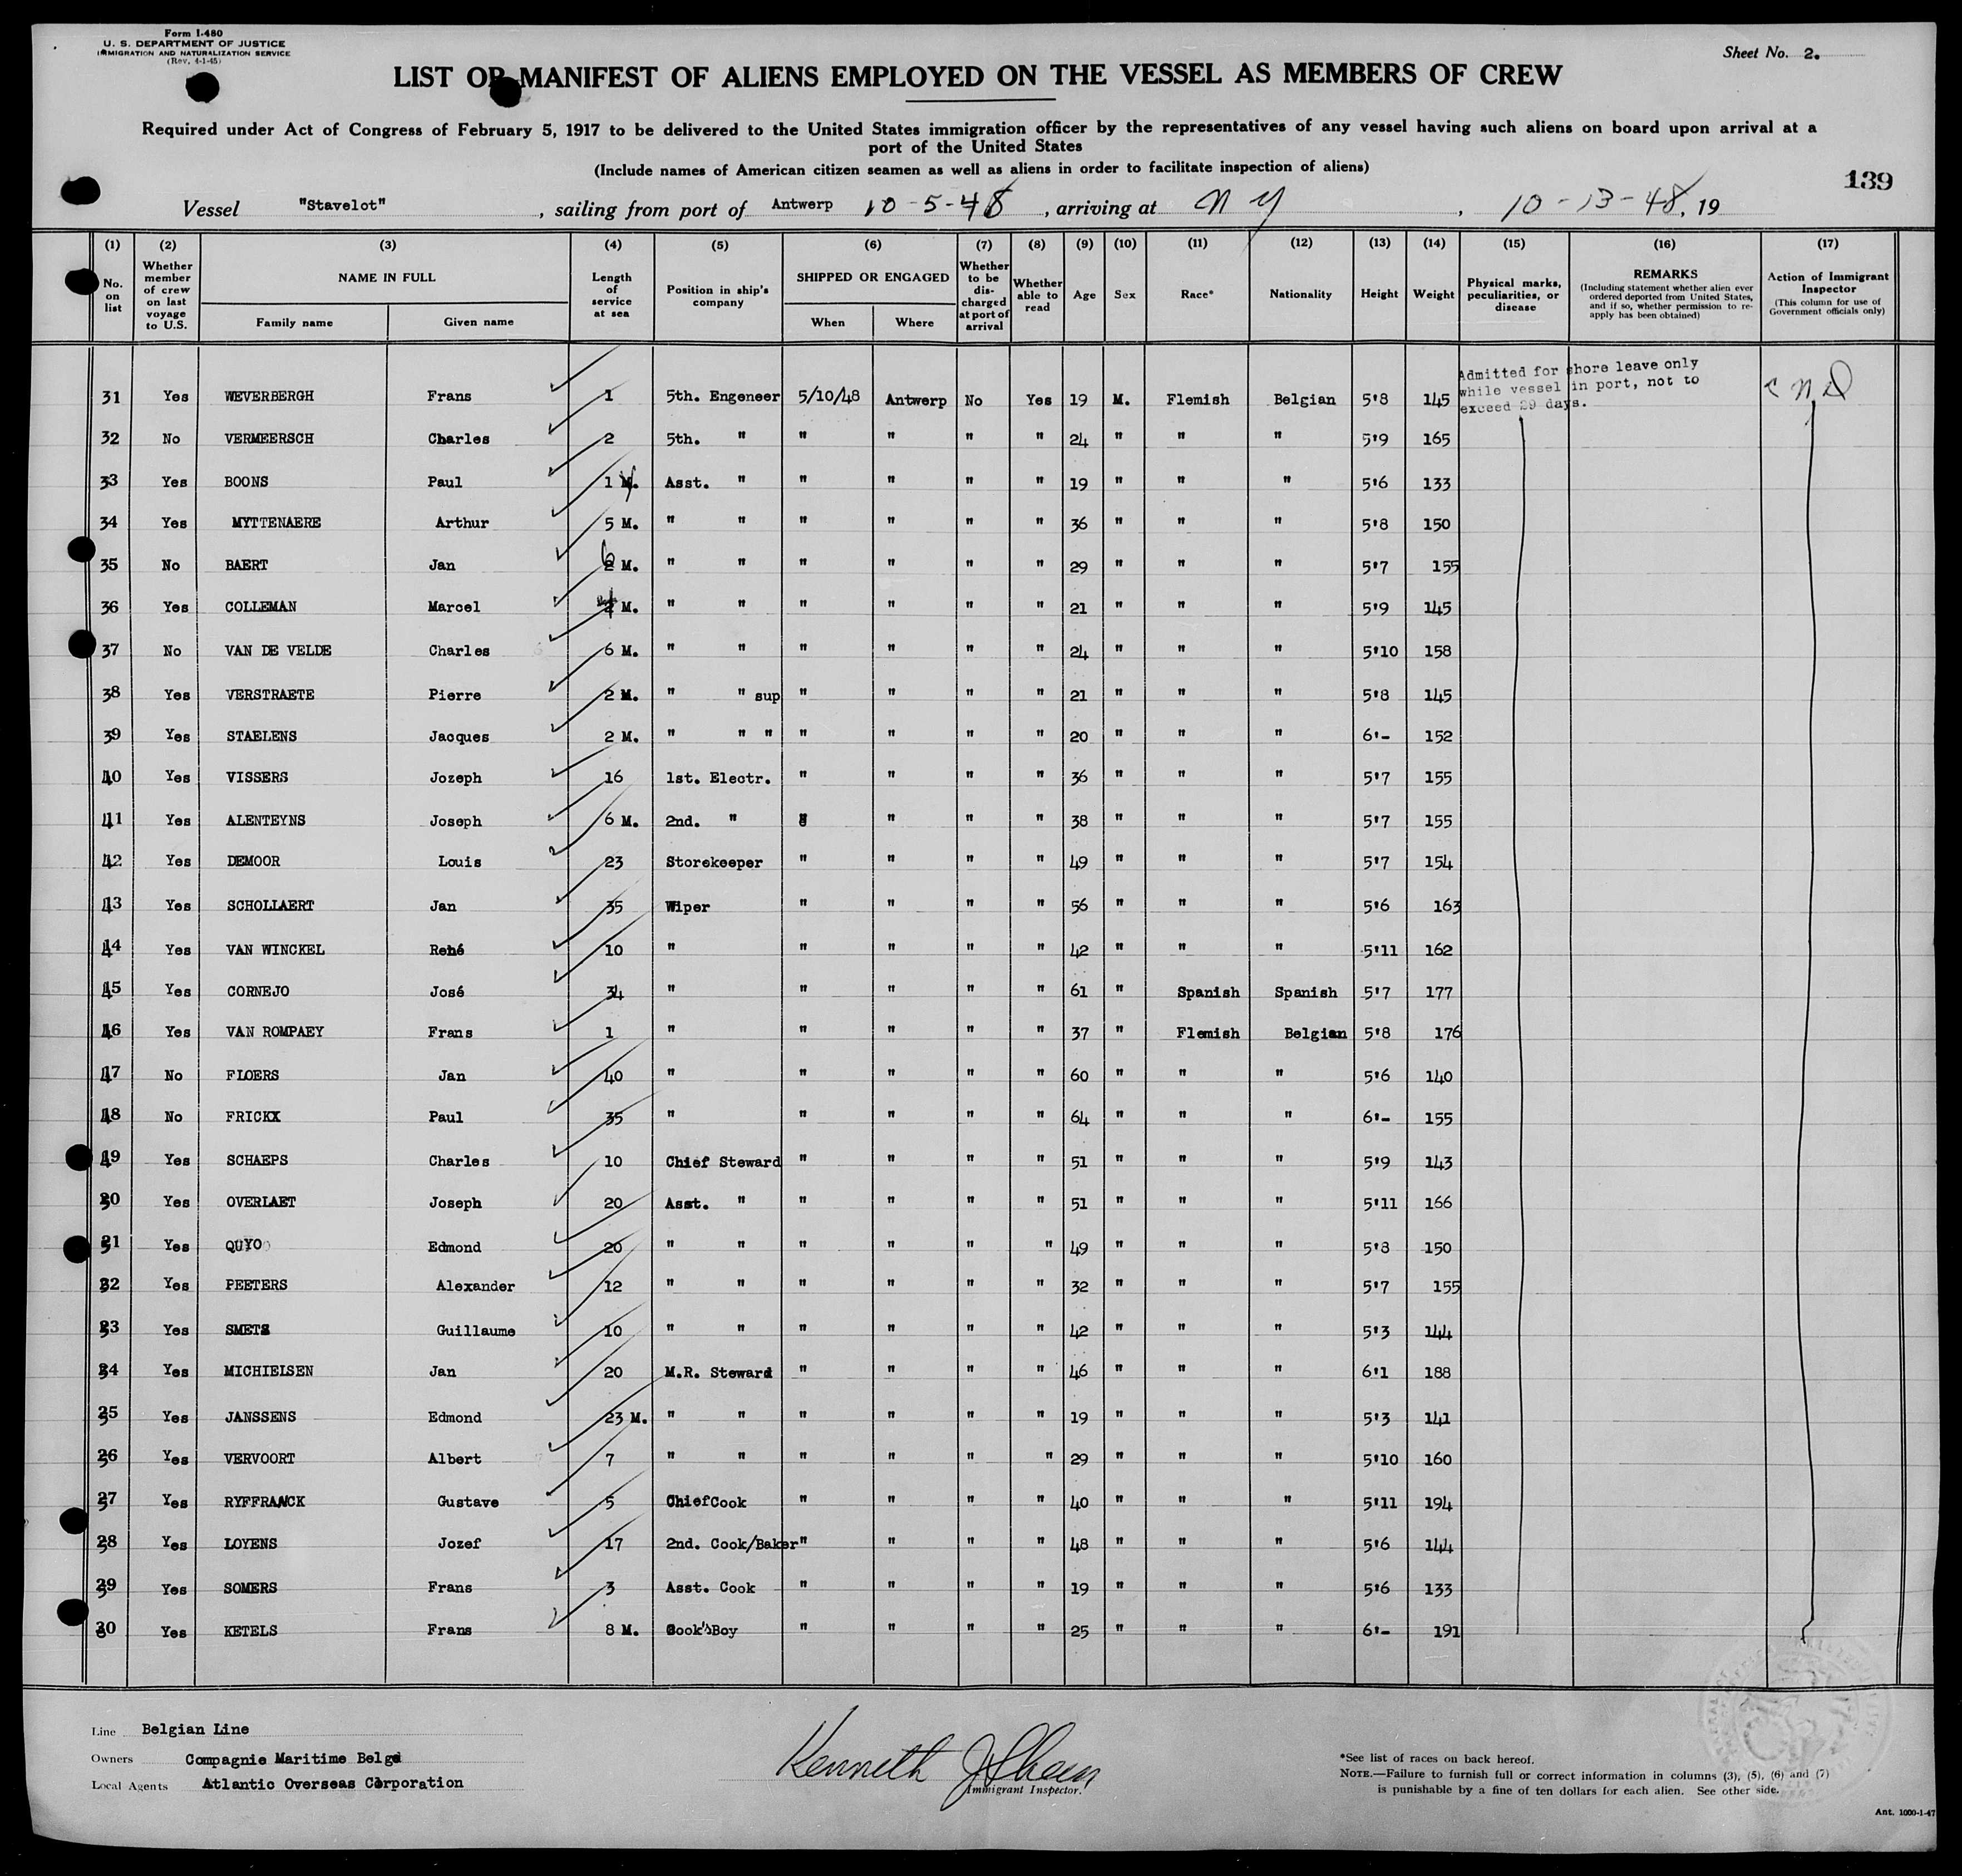 Form I-480
U. S. DEPARTMENT OF JUSTICE
IMMIGRATION AND NATURALIZATION SERVICE
(Rev. 4-1-45)
Sheet No. 2.
LIST OR MANIFEST OF ALIENS EMPLOYED ON THE VESSEL AS MEMBERS OF CREW
Required under Act of Congress of February 5, 1917 to be delivered to the United States immigration officer by the representatives of any vessel having such aliens on board upon arrival at a
port of the United States
(Include names of American citizen seamen as well as aliens in order to facilitate inspection of aliens)
139
Vessel "Stavelot", sailing from port of Antwerp 10-5-48, arriving at N Y, 10-13-48, 19
(1) (2) (3) (4) (5) (6) (7) (8) (9) (10) (11) (12) (13) (14) (15) (16) (17)
No. on list
Whether member of crew on last voyage to U.S.
NAME IN FULL
Family name Given name
Length of service at sea
Position in ship's company
SHIPPED OR ENGAGED
When Where
Whether to be discharged at port of arrival
Whether able to read
Age Sex Race* Nationality Height Weight
Physical marks, peculiarities, or disease
REMARKS
(Including statement whether alien ever ordered deported from United States, and if so, whether permission to reapply has been obtained)
Action of Immigrant Inspector
(This column for use of Government officials only)
Admitted for shore leave only
while vessel in port, not to
exceed 29 days.
31 Yes WEVERBERGH Frans 1 5th. Engeneer 5/10/48 Antwerp No Yes 19 M. Flemish Belgian 5'8 145
32 No VERMEERSCH Charles 2 5th. " " " " " 24 " " " 5'9 165
33 Yes BOONS Paul 1 Asst. " " " " " 19 " " " 5'6 133
34 Yes MYTTENAERE Arthur 5 M. " " " " " " 36 " " " 5'8 150
35 No BAERT Jan 6 M. " " " " " " 29 " " " 5'7 155
36 Yes COLLEMAN Marcel M. " " " " " " 21 " " " 5'9 145
37 No VAN DE VELDE Charles 6 M. " " " " " " 24 " " " 5'10 158
38 Yes VERSTRAETE Pierre 2 M. " " sup " " " " 21 " " " 5'8 145
39 Yes STAELENS Jacques 2 M. " " " " " " " 20 " " " 6'- 152
40 Yes VISSERS Jozeph 16 1st. Electr. " " " " 36 " " " 5'7 155
41 Yes ALENTEYNS Joseph 6 M. 2nd. " " " " " 38 " " " 5'7 155
42 Yes DEMOOR Louis 23 Storekeeper " " " " 49 " " " 5'7 154
43 Yes SCHOLLAERT Jan 35 Wiper " " " " 56 " " " 5'6 163
44 Yes VAN WINCKEL René 10 " " " " " 42 " " " 5'11 162
45 Yes CORNEJO José 34 " " " " " 61 " Spanish Spanish 5'7 177
46 Yes VAN ROMPAEY Frans 1 " " " " " 37 " Flemish Belgian 5'8 176
47 No FLOERS Jan 40 " " " " " 60 " " " 5'6 140
48 No FRICKX Paul 35 " " " " " 64 " " " 6'- 155
49 Yes SCHAEPS Charles 10 Chief Steward " " " " 51 " " " 5'9 143
50 Yes OVERLAET Joseph 20 Asst. " " " " " 51 " " " 5'11 166
51 Yes QUYO Edmond 20 " " " " " " 49 " " " 5'8 150
52 Yes PEETERS Alexander 12 " " " " " " 32 " " " 5'7 155
53 Yes SMETS Guillaume 10 " " " " " " 42 " " " 5'3 144
54 Yes MICHIELSEN Jan 20 M.R. Steward " " " " 46 " " " 6'1 188
55 Yes JANSSENS Edmond 23 M. " " " " " " 19 " " " 5'3 141
56 Yes VERVOORT Albert 7 " " " " " " 29 " " " 5'10 160
57 Yes RYFFRANCK Gustave 5 Chief Cook " " " " 40 " " " 5'11 194
58 Yes LOYENS Jozef 17 2nd. Cook/Baker " " " " 48 " " " 5'6 144
59 Yes SOMERS Frans 3 Asst. Cook " " " " 19 " " " 5'6 133
60 Yes KETELS Frans 8 M. Cook's Boy " " " " 25 " " " 6'- 191
Line Belgian Line
Owners Compagnie Maritime Belge
Local Agents Atlantic Overseas Corporation
Kenneth J Sheen
Immigrant Inspector.
*See list of races on back hereof.
NOTE.—Failure to furnish full or correct information in columns (3), (5), (6) and (7)
is punishable by a fine of ten dollars for each alien. See other side.
Ant. 1000-1-47